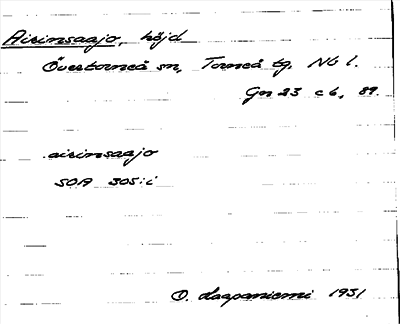 Airinsaajo, höjd
Övertorneå sn, Torneå tg. Nb l.
Gn 23 c 6, 89.
airinsaajo
SOA 305:i
O. Laapaniemi 1931